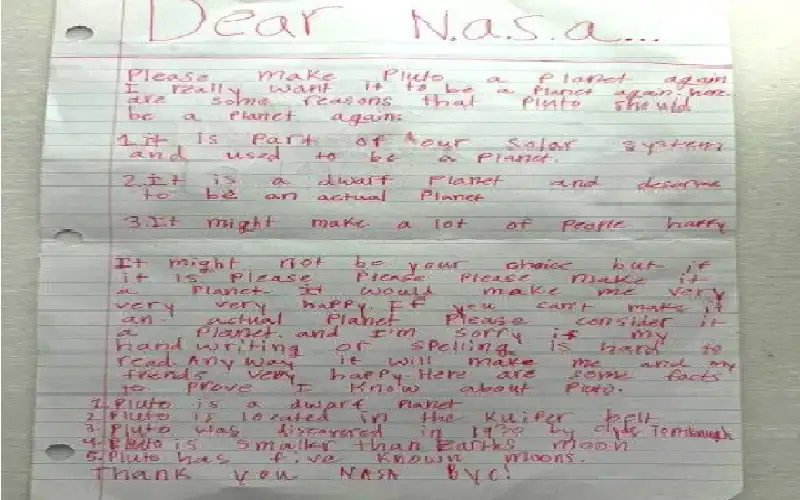 Dear N.a.s.a...
Please make Pluto a Planet again
I really want it to be a Planet again. here
are some reasons that Pluto should
be a Planet again:
1. it is Part of our solar system
and used to be a Planet.
2. It is a dwarf Planet and deserve
to be an actual Planet
3. It might make a lot of People happy
It might not be your choice but if
it is Please Please Please make it
a Planet. It would make me very
very very happy. If you can't make it
an actual Planet Please consider it
a Planet. and I'm sorry if my
hand writing or spelling is hard to
read. Any way it will make me and my
friends very happy. Here are some facts
to prove I know about Pluto.
1. Pluto is a dwarf Planet
2. Pluto is located in the Kuiper belt
3. Pluto was discovered in 1930 by Clyde Tombaugh
4. Pluto is smaller than Earths moon
5. Pluto has five known moons.
Thank you NASA Bye!